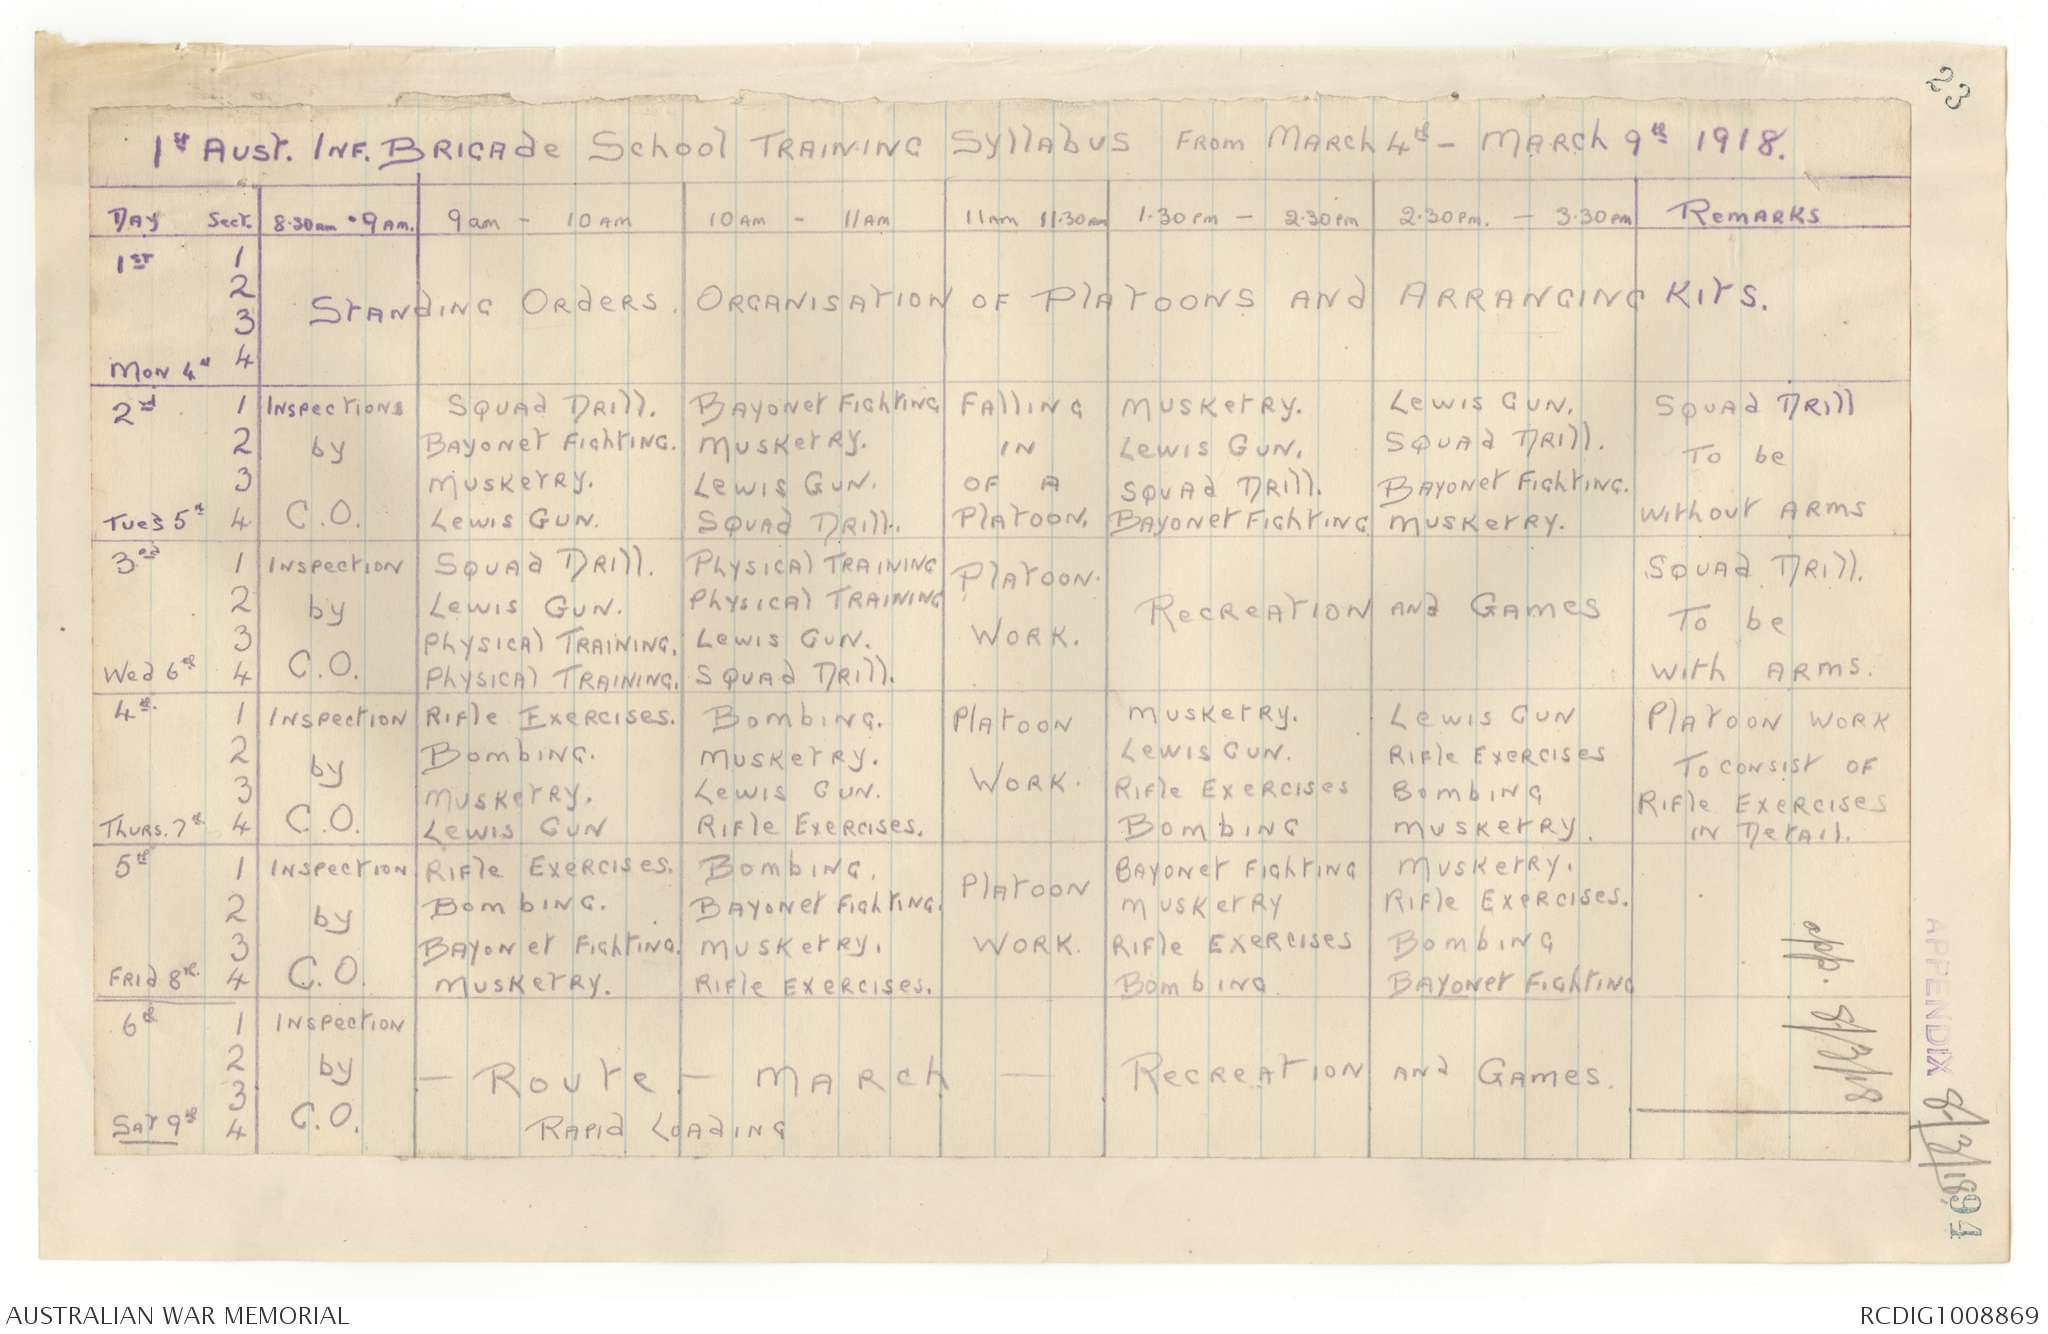 23
1st Aust. Inf. Brigade School Training Syllabus From March 4th - March 9th 1918.
Day Sect. 8.30am - 9am. 9am - 10am 10am - 11am 11am 11.30am 1.30pm - 2.30pm 2.30pm. - 3.30pm Remarks
1st 1
2
Standing Orders. Organisation of Platoons and Arranging Kits.
3
Mon 4th 4
2nd 1 Inspections Squad Drill. Bayonet Fighting Falling Musketry. Lewis Gun. Squad Drill
2 by Bayonet Fighting. Musketry. in Lewis Gun. Squad Drill. To be
3 Musketry. Lewis Gun. of a Squad Drill. Bayonet Fighting.
Tues 5th 4 C.O. Lewis Gun. Squad Drill. Platoon. Bayonet Fighting Musketry. without arms
3rd 1 Inspection Squad Drill. Physical Training Platoon. Squad Drill.
2 by Lewis Gun. Physical Training Recreation and Games To be
3 Physical Training. Lewis Gun. Work.
Wed 6th 4 C.O. Physical Training. Squad Drill. with arms.
4th. 1 Inspection Rifle Exercises. Bombing. Platoon Musketry. Lewis Gun Platoon work
2 by Bombing. Musketry. Lewis Gun. Rifle Exercises To consist of
3 Musketry. Lewis Gun. Work. Rifle Exercises Bombing Rifle Exercises
Thurs. 7th 4 C.O. Lewis Gun Rifle Exercises. Bombing Musketry. in Detail.
5th 1 Inspection Rifle Exercises. Bombing. Platoon Bayonet Fighting Musketry.
2 by Bombing. Bayonet Fighting. Musketry Rifle Exercises.
3 Bayonet Fighting. Musketry. Work. Rifle Exercises Bombing
Frid 8th. 4 C.O. Musketry. Rifle Exercises. Bombing Bayonet Fighting
6th 1 Inspection
2 by - Route - March - Recreation and Games.
3
Sat 9th 4 C.O. Rapid Loading
app. 8/3/18
APPENDIX 8/3/18
94
AUSTRALIAN WAR MEMORIAL
RCDIG1008869